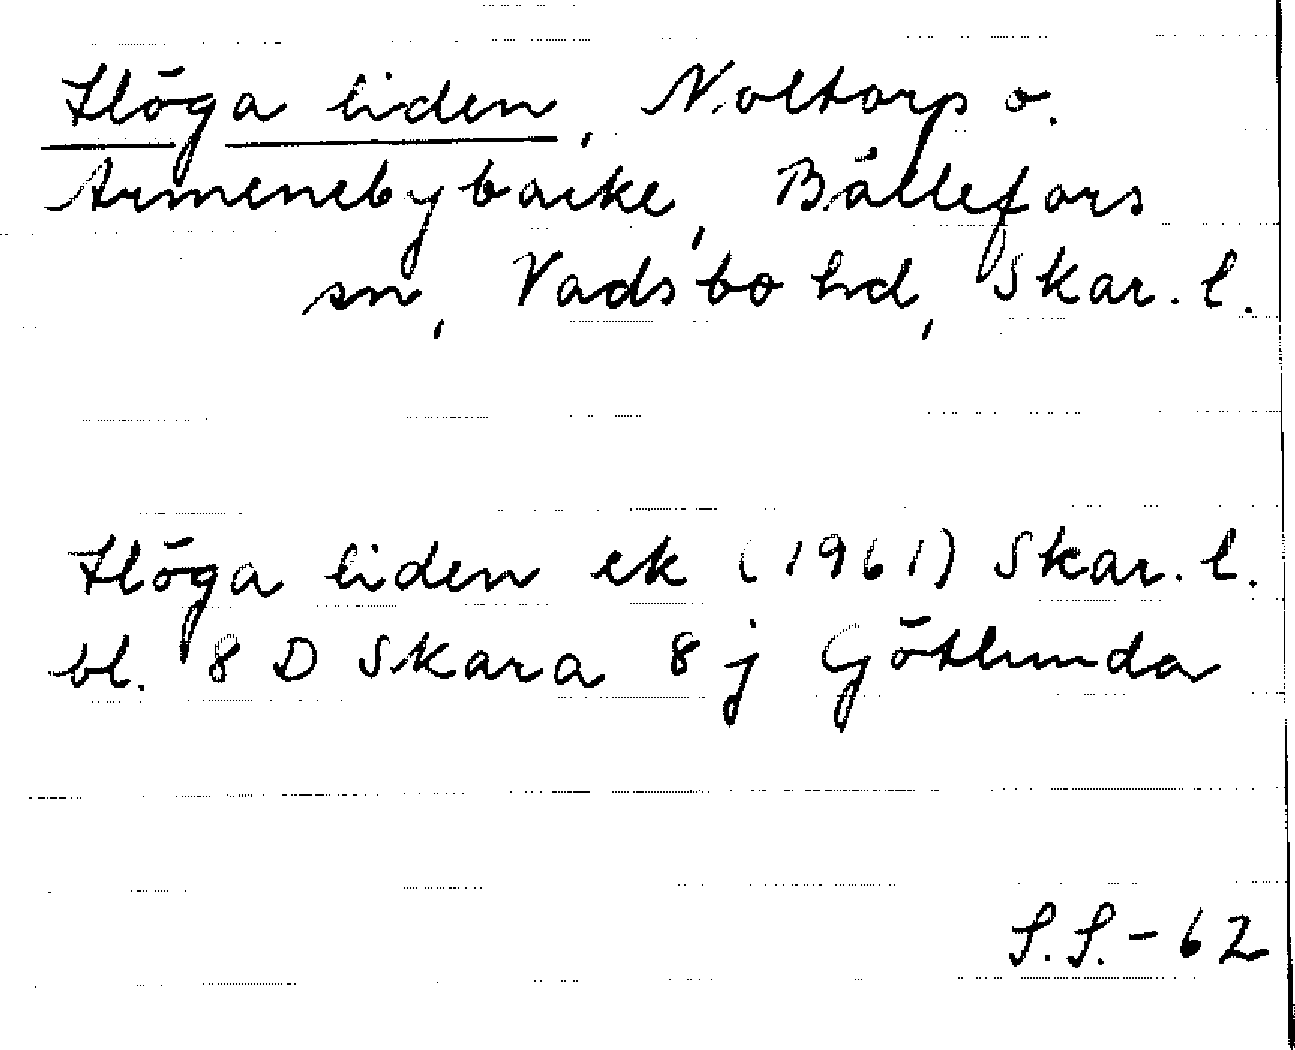 Höga liden, Noltorp o.
Armenebybacke, Bällefors
sn, Vadsbo hd, Skar. l.
Höga liden ek (1961) Skar. l.
bl. 8 D Skara 8 j Götlunda
S.S.-62